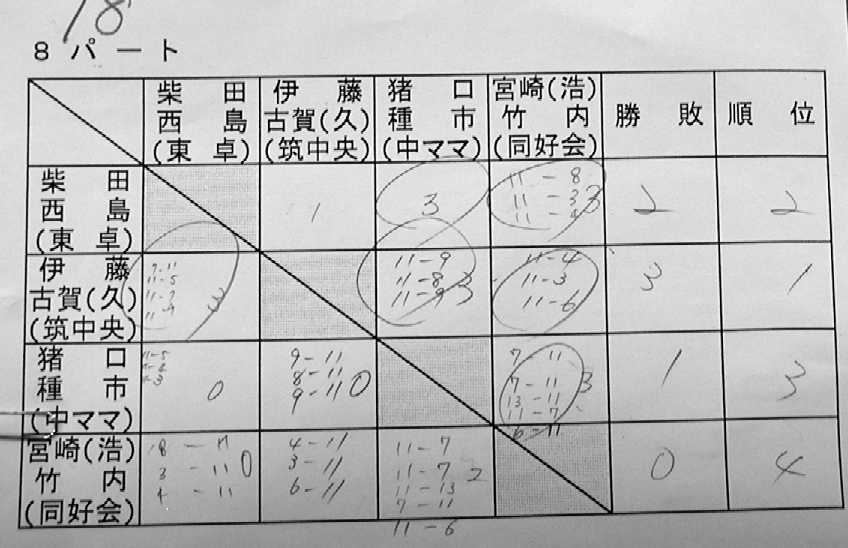 18
8 パート
柴 田 伊 藤 猪 口 宮崎(浩)
西 島 古賀(久) 種 市 竹 内 勝 敗 順 位
(東 卓) (筑中央) (中ママ) (同好会)
柴 田 11-8
西 島 1 3 11-3 3 2 2
(東 卓) 11-4
伊 藤 11-9 11-4
古賀(久) 11-5 3 11-8 3 11-3 3 1
(筑中央) 11-9 11-6
猪 口 9-11 7-11
種 市 0 8-11 0 7-11 3 1 3
(中ママ) 9-11 13-11
11-7
6-11
宮崎(浩) 8-11 4-11 11-7
竹 内 3-11 0 3-11 11-7 2 0 4
(同好会) 4-11 6-11 11-13
7-11
11-6